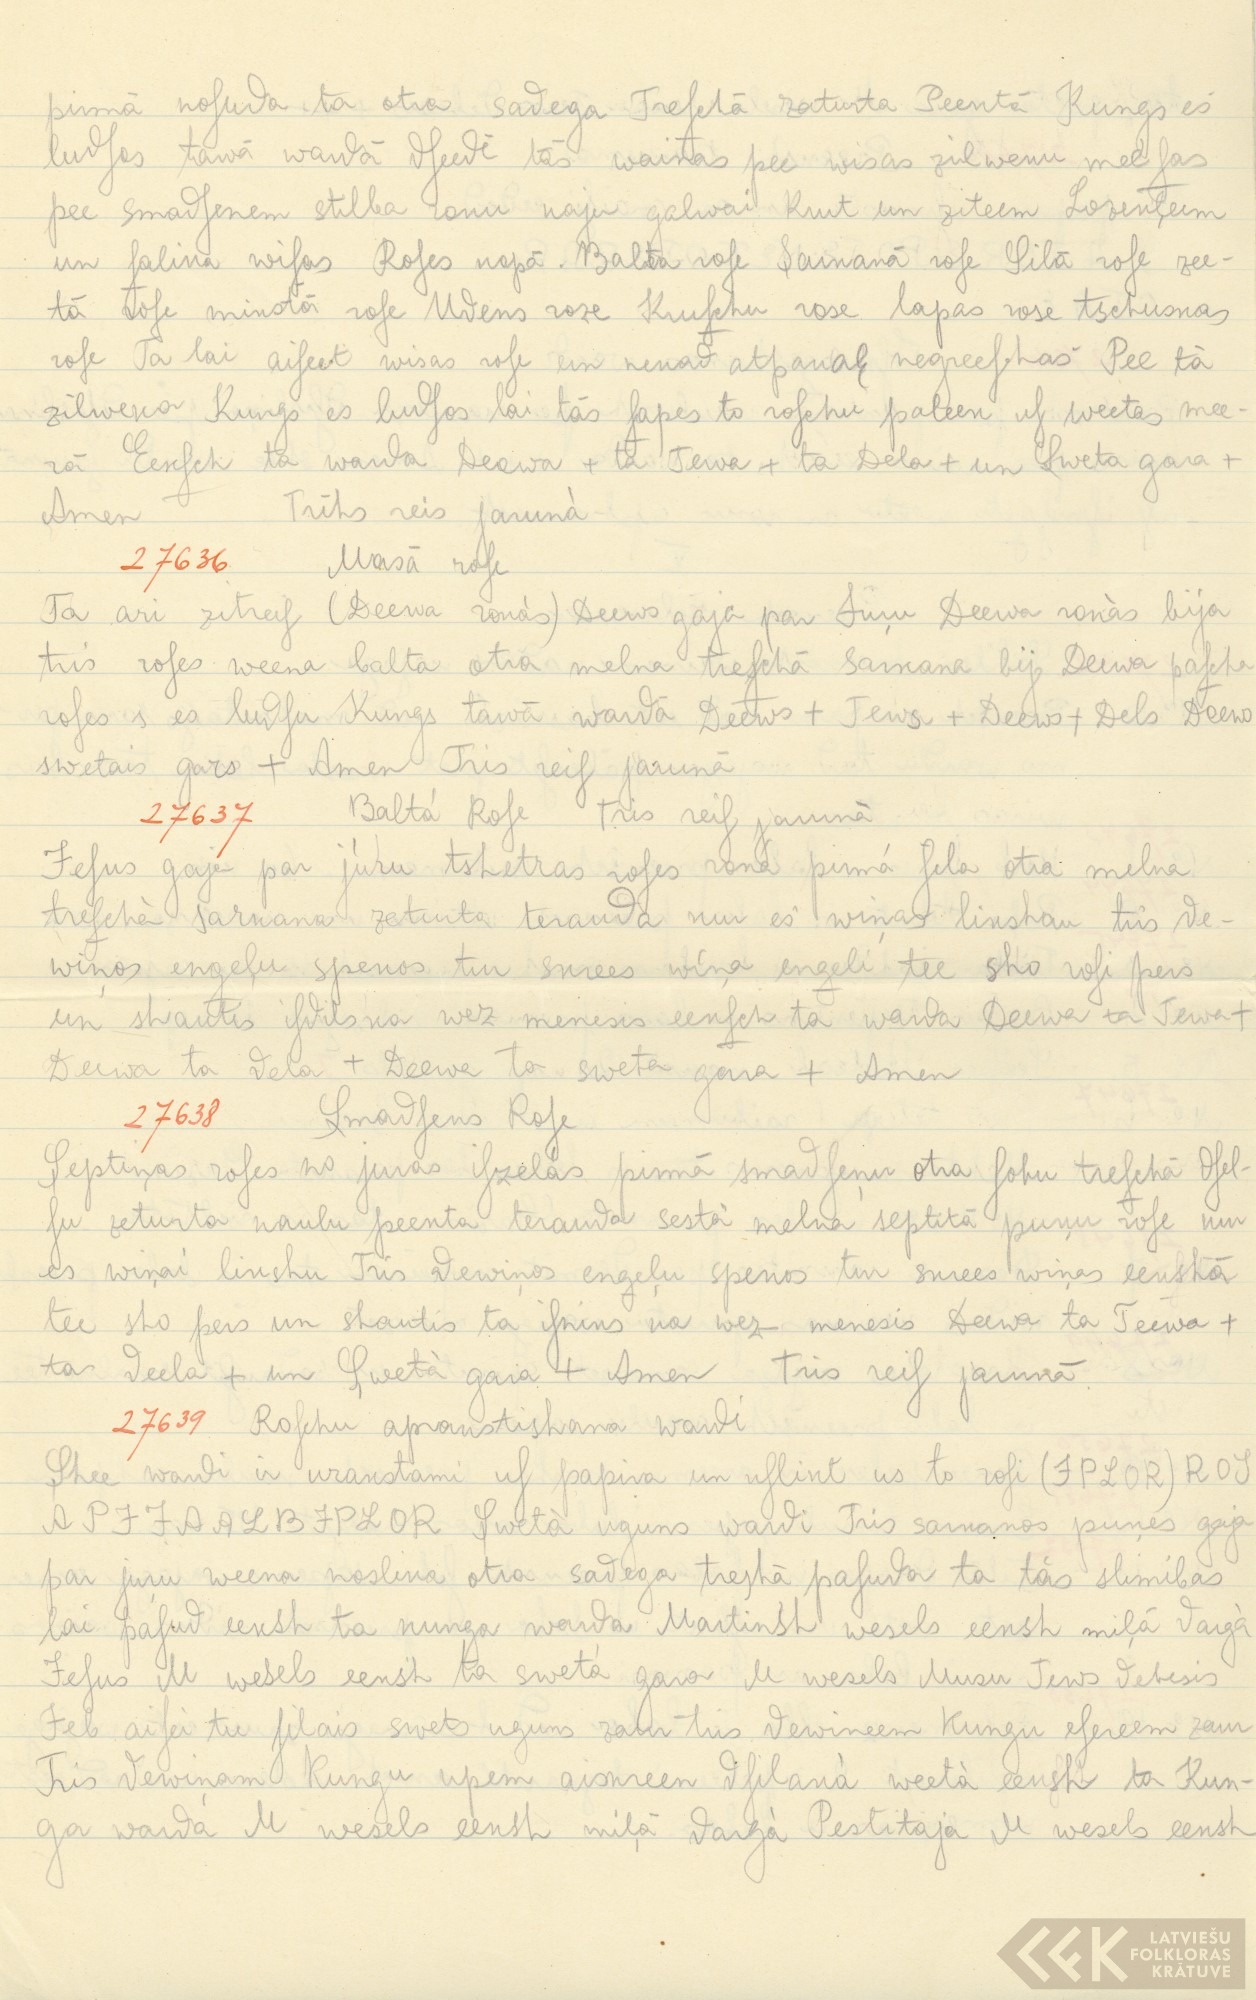 pirmā nosuda ta otra sadega Treschā zaturta Peentā Kungs es
ludsos tawā wardā dseedē tās wainas pee wisas zilwenu meesas
pee smadsenem stilba naju galwai Krut un ziteem Lozenteem
un salina wisas Roses nopā. Balta rose Sarnanā rose Silā rose zee-
tā Rose minstā rose Udens rose Kruschu rose lapas rose tschusnas
rose Ta lai aiseet wisas rose un nenad atpanal negreeschas Pee tā
zilwena Kungs es ludsos lai tās sapes to roschu paleen us weetas mee-
rā Eeksch ta warda Deewa + ta Tewa + ta Dela + un Sweta gara +
Amen Trihs reis jarunà
27636 Masā rose
Ta ari zitreis (Deewa ronàs) Deews gaja par Juru Deewa ronàs bija
tris roses weena balta otra melna treschā sarnana bij Deewa pascha
roses s es ludsu Kungs tawā wardā Deews + Tews + Deews + Dels Deews
swetais gars + Amen Tris reis jarunā
27637 Baltá Rose Tris reis jarunā
Jesus gaja par júru tshetras roses roná pirmá sela otra melna
treschà sarnana zaturta terauda nur es wiņas linshau tris de-
wiņos engeļu spenos tur snrees wiņa engeli tee sho rosi pers
un shautis isdilsna wez menesis eensch ta warda Deewa ta Tewa +
Deewa ta dela + Deewa ta sweta gara + Amen
27638 Smadsens Rose
Septiņas roses no juras iszélás pirmā smadseņu otra sobu treschā dsel-
su zeturta naulu peenta terauda sestà melna septitā puņu rose nur
es wiņai linshu Tris dewiņos engeļu spenos tur snrees wiņas eenshā
tee sho pers un shautis ta isnins na wez menesis Deewa ta Teewa +
ta deela + un Swetà gara + Amen Tris reis jarunā
27639 Roschu apranstishana wardi
Shee wardi ir uzranstami us papira un uslint us to rosi (JPLOR) ROJ
APJJAALBJPLOR Swetà uguns wardi Tris sarnanos puņes gaja
par juru weena noslina otra sadega treshā pasuda ta tās slimibas
lai pasud eensh ta nunga warda Martinsh wesels eensh miļā dargà
Jesus M wesels eensh ta swetá gara M wesels Musu Tews debesis
Jeb aisei tu silais swets uguns zaur tris dewineem Kungu esereem zaur
Tris dewiņam Kungu upem aisnreen dsilanà weetà eensh ta Kun-
ga wardá M wesels eensh miļā dargà Pestitaja M wesels eensh
LATVIEŠU
FOLKLORAS
KRĀTUVE